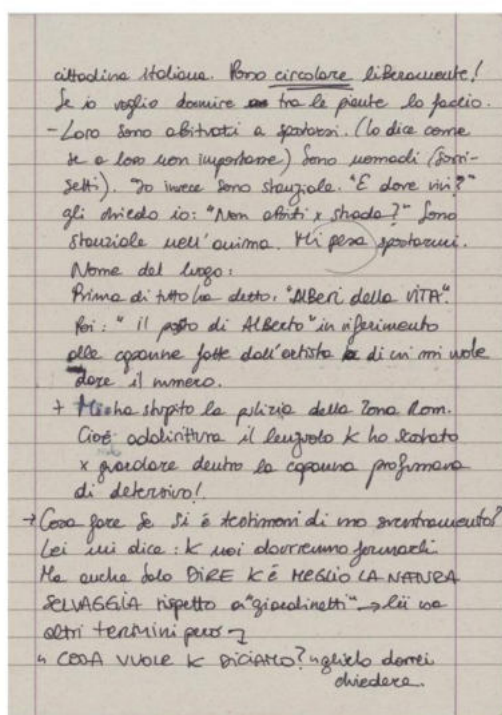 cittadina italiana. Posso circolare liberamente!
Se io voglio dormire tra le piante lo faccio.
- Loro sono abituati a spostarsi. (lo dice come
se a loro non importasse) Sono nomadi (sorri-
setti). Io invece sono stanziale. "E dove vivi?"
gli chiedo io: "Non abiti x strada?" Sono
stanziale nell'anima. Mi pesa spostarmi.
Nome del luogo:
Prima di tutto ha detto: "AlBeri della VITA".
Poi: "il posto di AlBerto" in riferimento
alle capanne fatte dall'artista di cui mi vuole
dare il numero.
+ Mi ha stupito la pulizia della Zona Rom.
Cioè addirittura il lenzuolo k ho scostato
x guardare dentro la capanna profumava
di detersivo!
→ Cosa fare se si è testimoni di uno sventramento?
Lei mi dice: k noi dovremmo fermarli
Ma anche solo DIRE K È MEGLIO LA NATURA
SELVAGGIA rispetto a "giardinetti" → lei usa
altri termini però
COSA VUOLE K DICIAMO? glielo dovrei
chiedere.